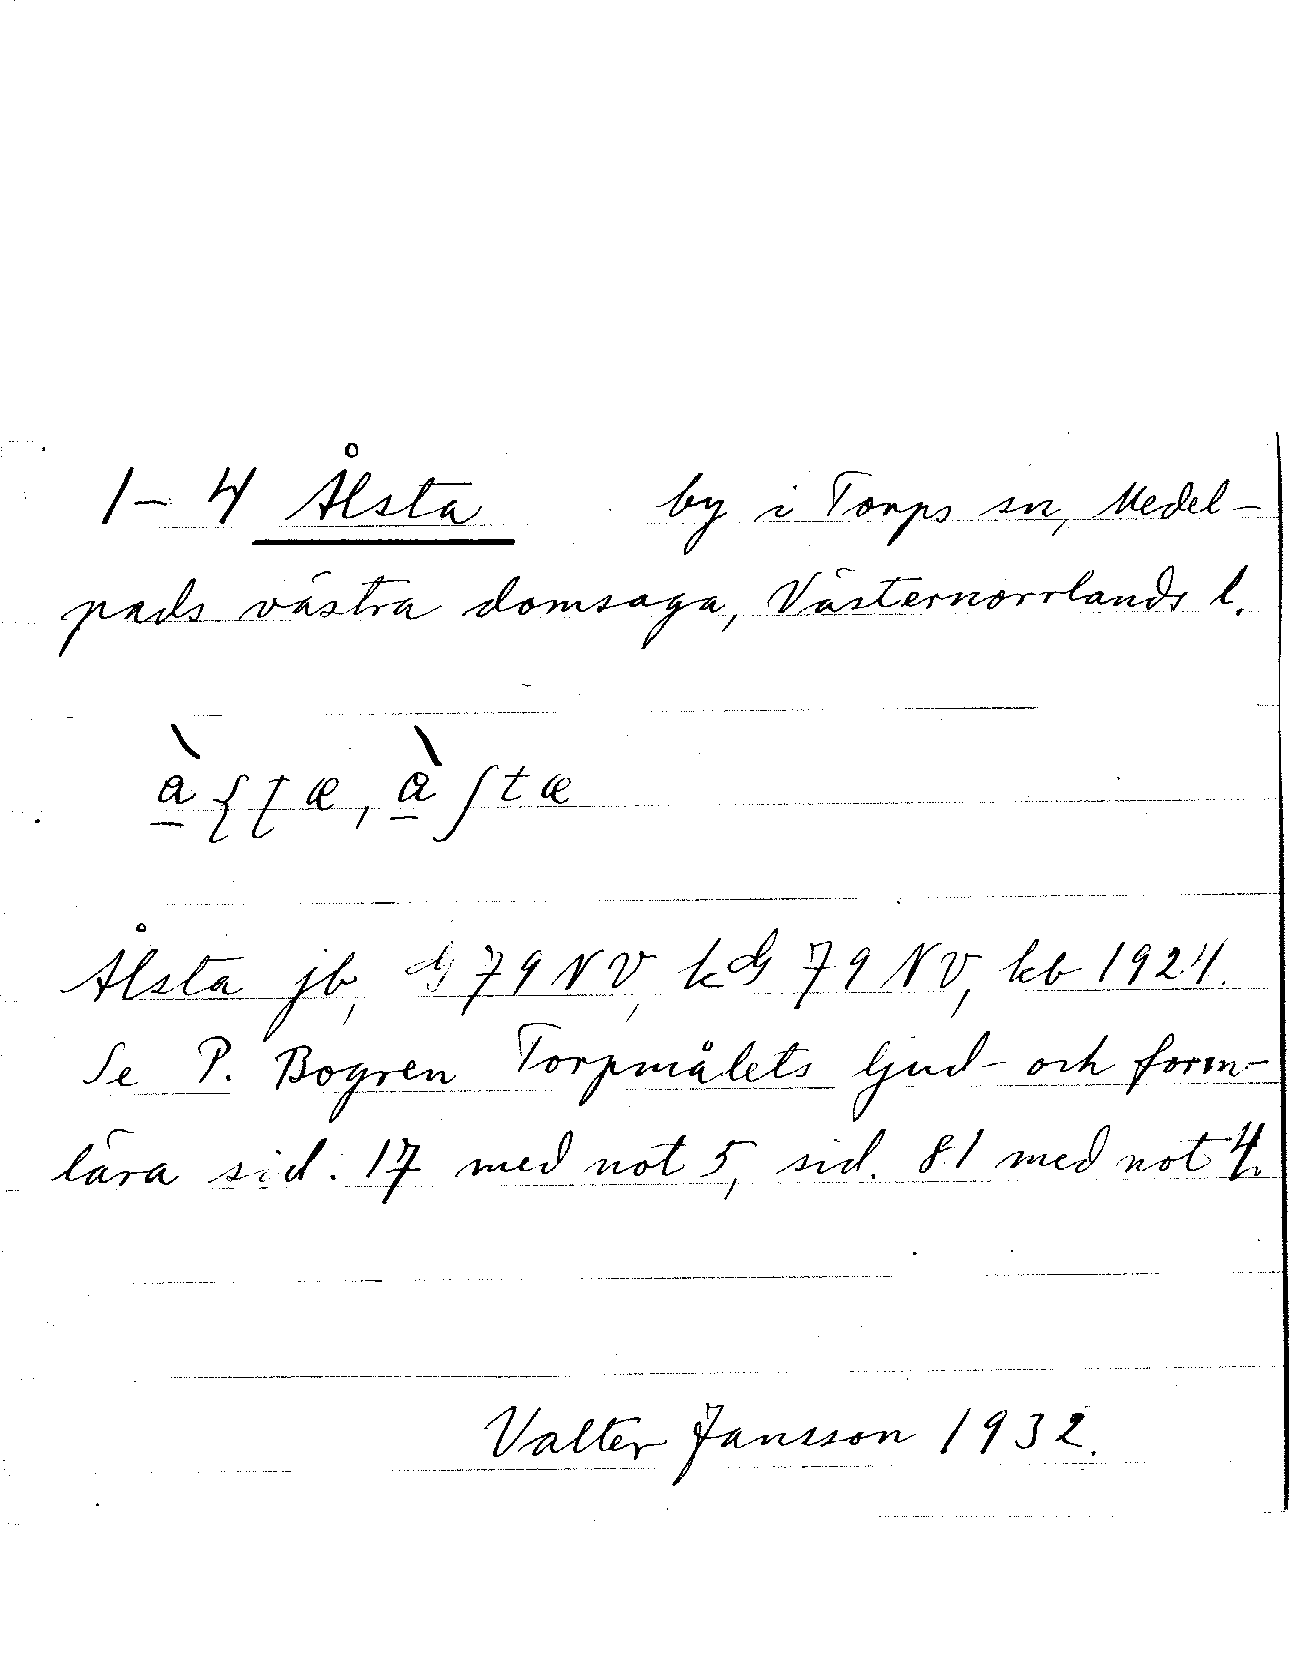 1-4 Ålsta by i Torps sn, Medel-
pads västra domsaga, Västernorrlands l.
Ålsta jb, G 79 NV, kG 79 NV, kb 1924.
Se P. Bogren Torpmålets ljud- och form-
lära sid. 17 med not 5, sid. 81 med not 4.
Valter Jansson 1932.